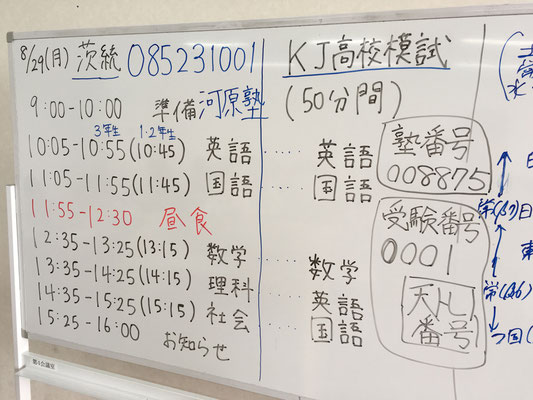 8/29(月) 茨統 085231001
9:00-10:00 準備 河原塾
3年生 1・2年生
10:05-10:55(10:45) 英語
11:05-11:55(11:45) 国語
11:55-12:30 昼食
12:35-13:25(13:15) 数学
13:35-14:25(14:15) 理科
14:35-15:25(15:15) 社会
15:25-16:00 お知らせ
第4会議室
KJ高校模試
(50分間)
英語
国語
数学
英語
国語
塾番号
008875
受験番号
0001
番号